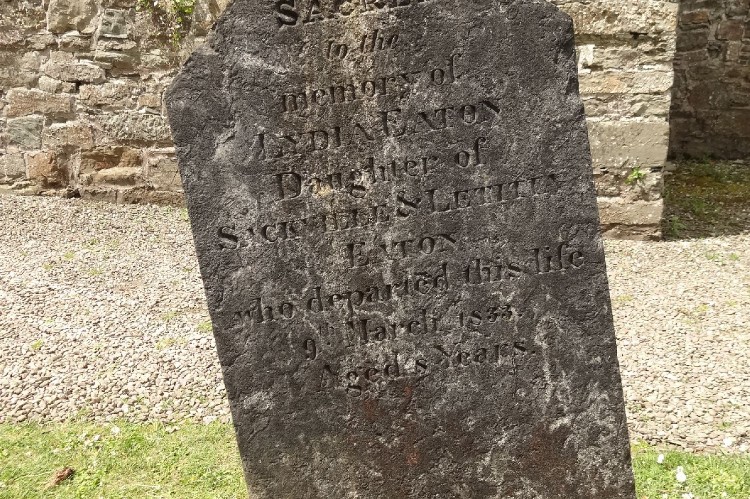 SACRED
to the
memory of
LYDIA EATON
Daughter of
SACKVILLE & LETITIA
EATON
who departed this life
9th March 1833.
Aged 8 Years.